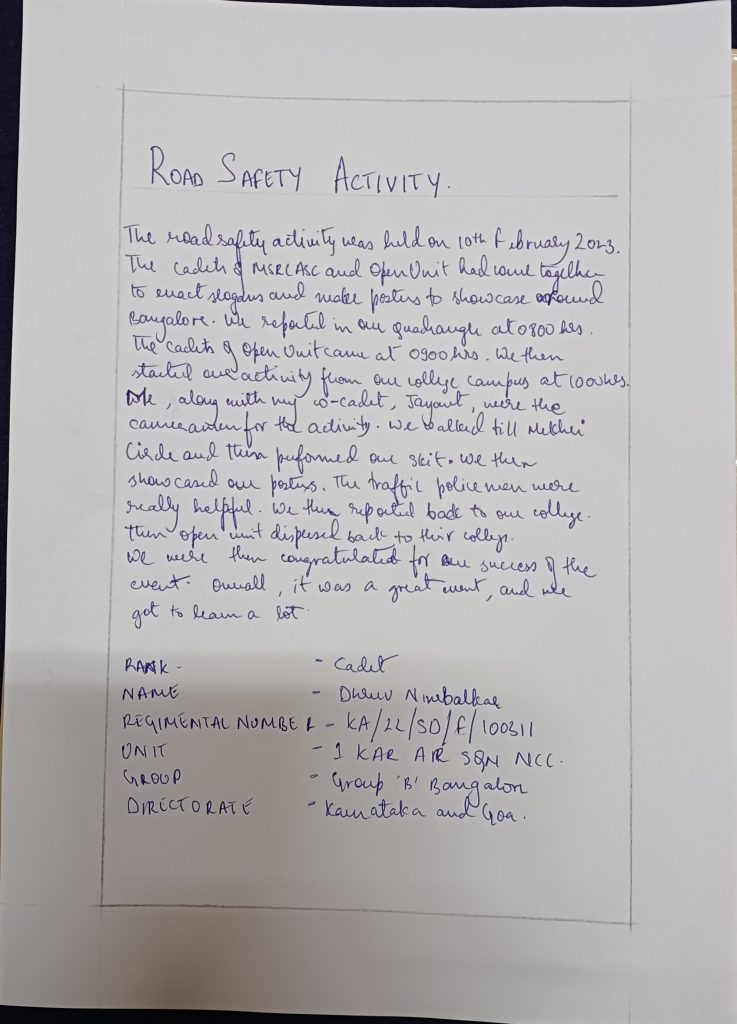 ROAD SAFETY ACTIVITY.
The road safety activity was held on 10th February 2023.
The cadets of MSRCASC and Open Unit had come together
to enact slogans and make posters to showcase around
Bangalore. We reported in our quadrangle at 0800 hrs.
The cadets of Open Unit came at 0900 hrs. We then
started our activity from our college campus at 1000 hrs.
, along with my co-cadet, Jayant, were the
cameramen for the activity. We walked till Mekhri
Circle and then performed our skit. We then
showcased our posters. The traffic policemen were
really helpful. We then reported back to our college.
Then open unit dispersed back to their college.
We were then congratulated for our success of the
event. Overall, it was a great event, and we
got to learn a lot.
RANK - - Cadet
NAME - Dhruv Nimbalkar
REGIMENTAL NUMBER - KA/22/SD/F/100311
UNIT - 1 KAR AIR SQN NCC.
GROUP - Group 'B' Bangalore
DIRECTORATE - Karnataka and Goa.